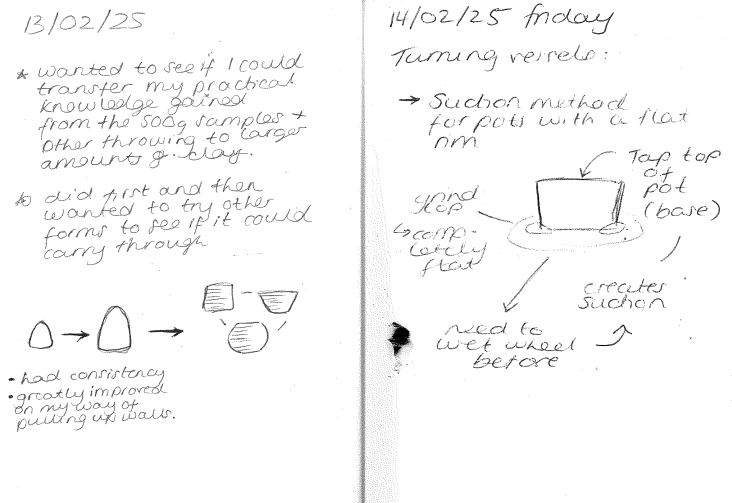 13/02/25
* wanted to see if I could
transfer my practical
knowledge gained
from the 500g samples +
other throwing to larger
amounts of clay.
* did first and then
wanted to try other
forms to see if it could
carry through
• had consistency
• greatly improved
on my way of
pulling up walls.
14/02/25 friday
Turning vessels:
→ Suction method
for pots with a flat
rim
Tap top
of
pot
(base)
grind
top
↳ comp-
letely
flat
creates
suction
need to
wet wheel
before